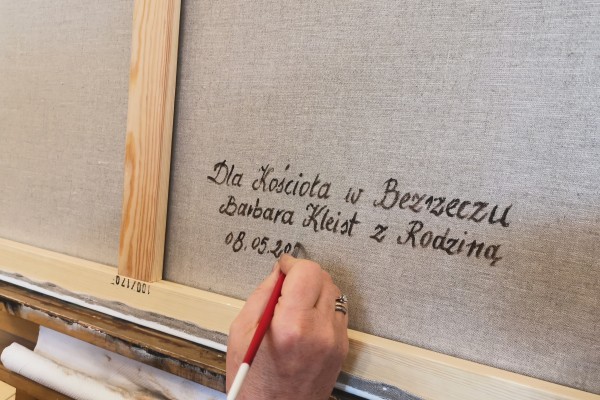 Dla Kościoła w Bezrzeczu
Barbara Kleist z Rodziną
08.05.20
100/170